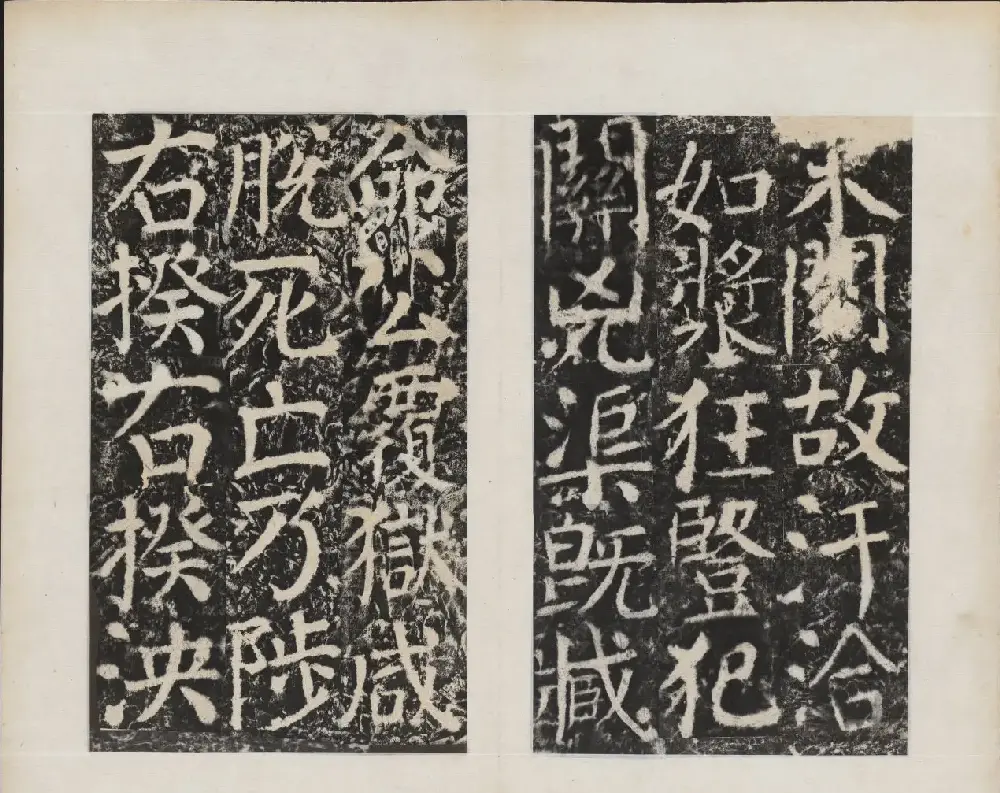 故汗洽
如漿狂豎犯
關兇渠既臧
命公覆獄咸
脫死亡乃陟
右揆右揆泱